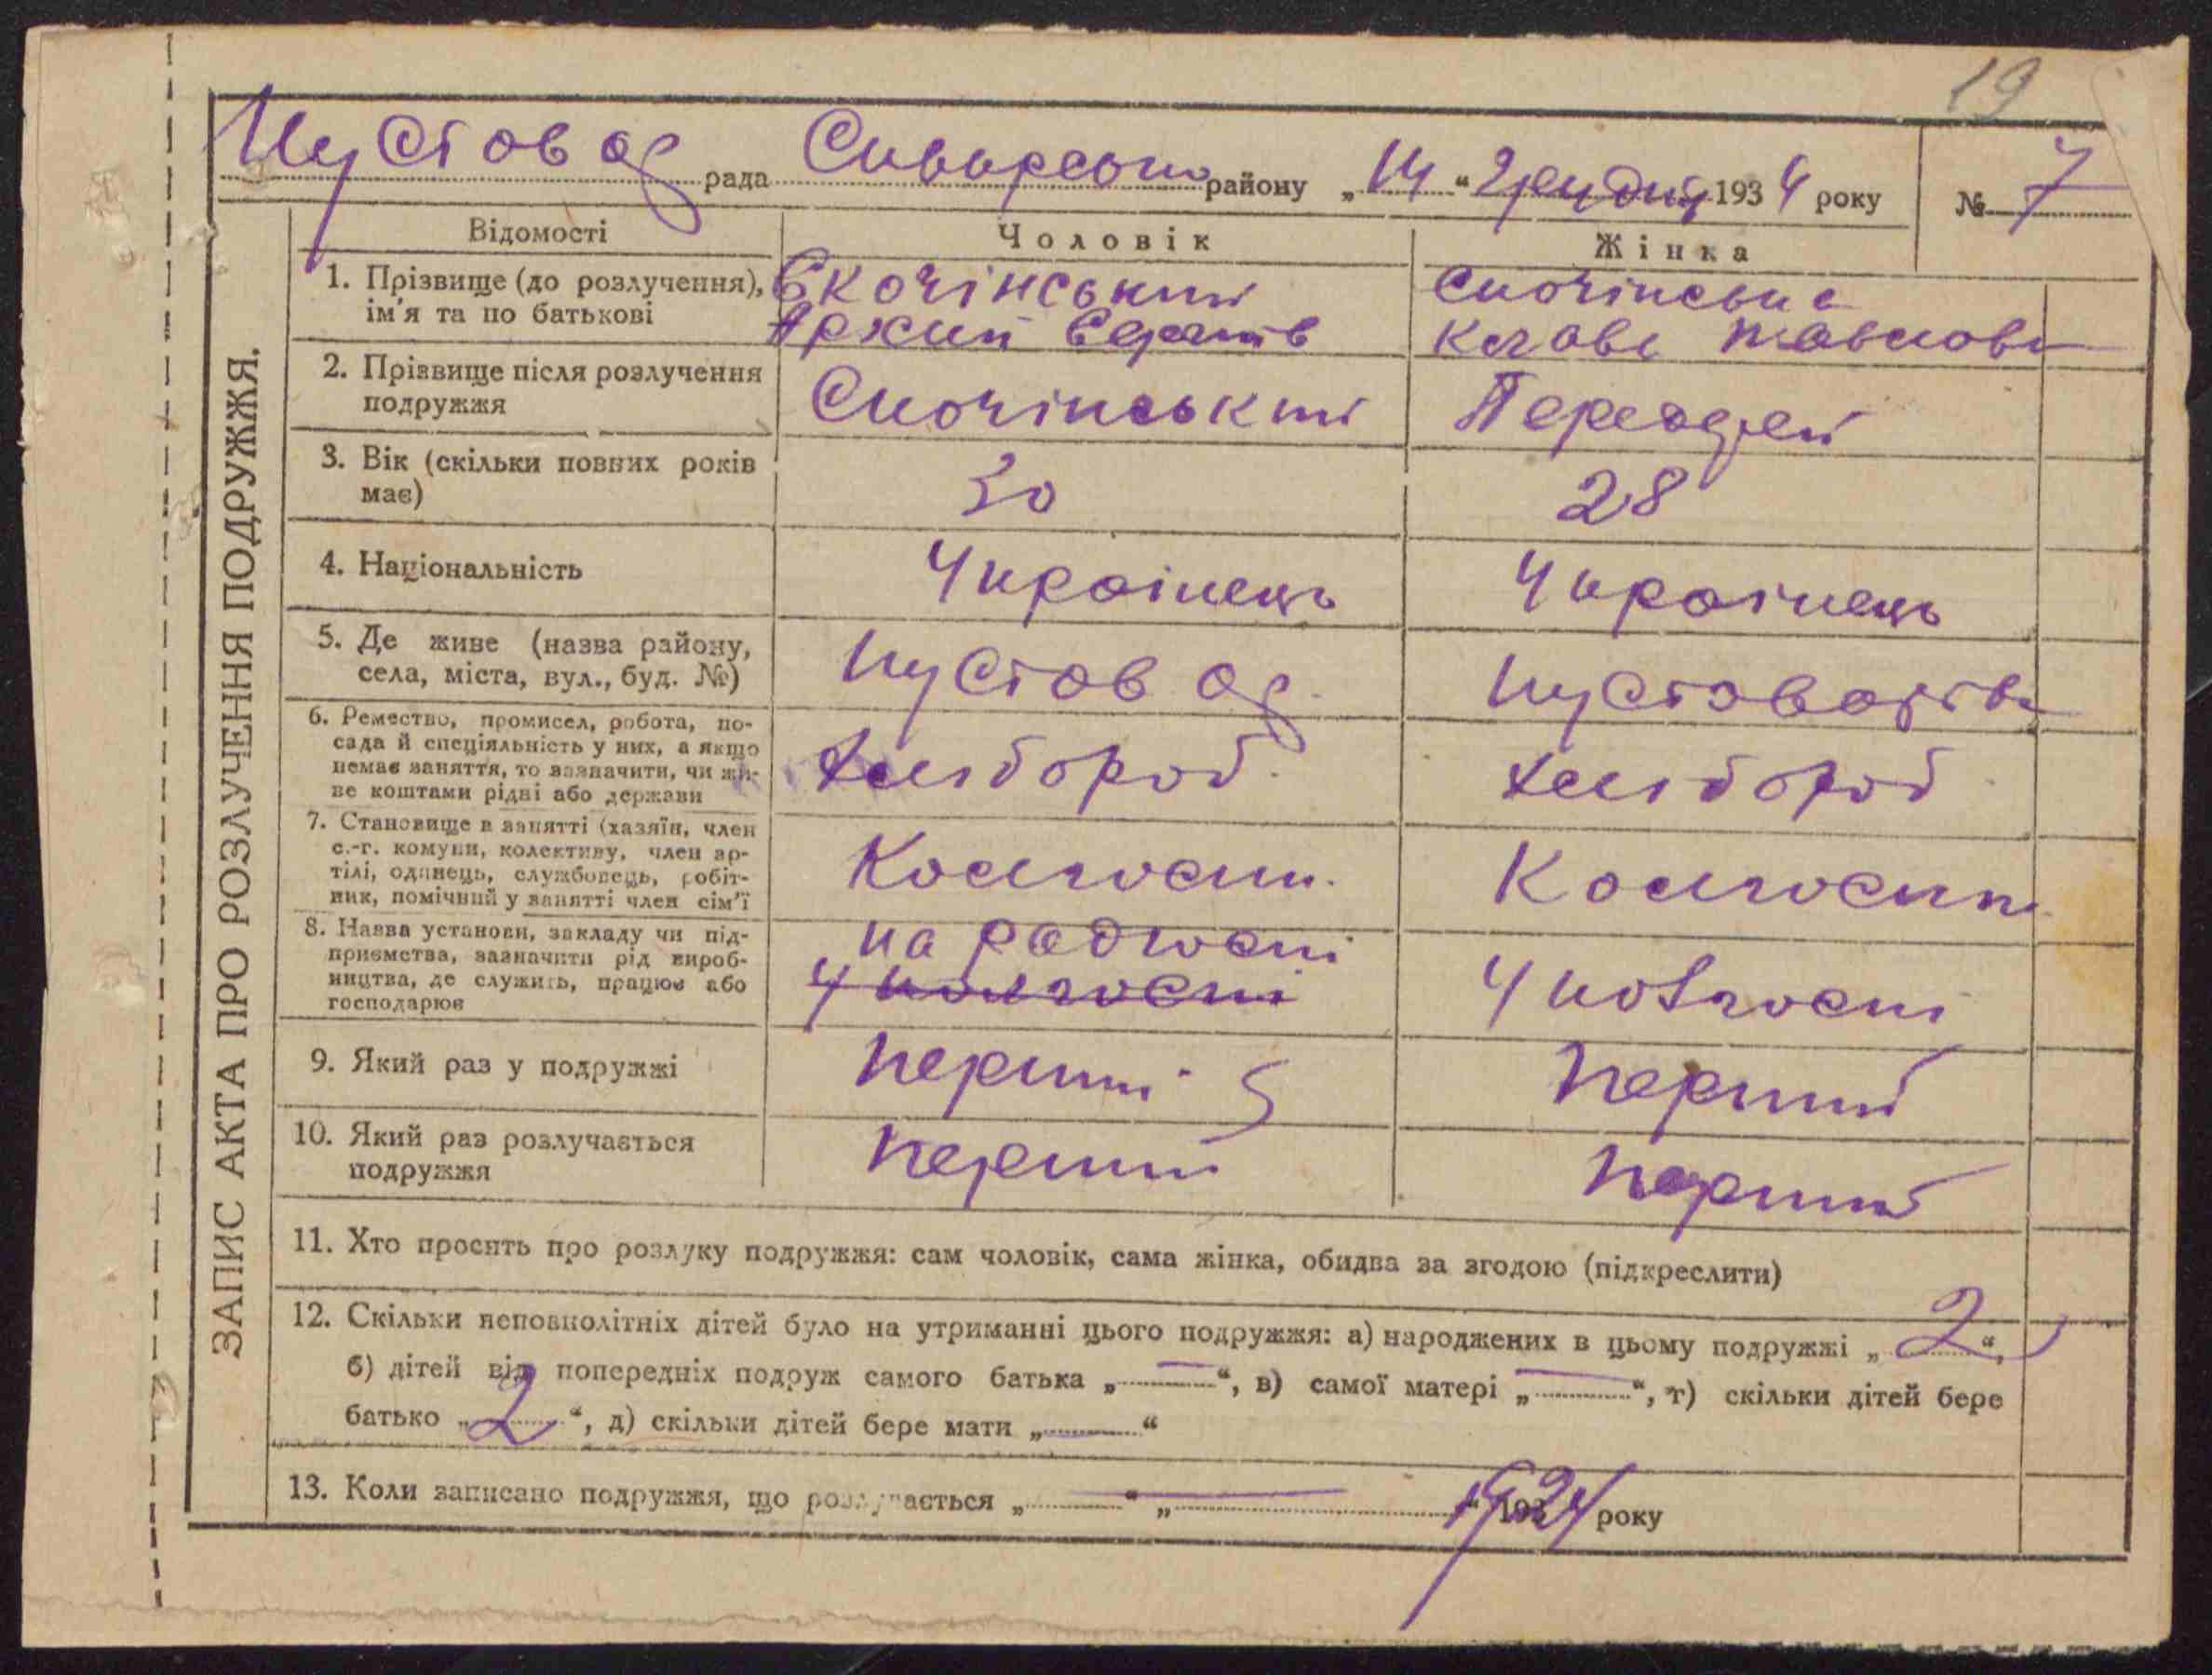 19
Пустовар рада Сквирського району „14“ грудня 1934 року № 7
ЗАПИС АКТА ПРО РОЗЛУЧЕННЯ ПОДРУЖЖЯ.
Відомості Чоловік Жінка
1. Прізвище (до розлучення), Скочінський Скочінська
ім'я та по батькові Архип Павлова
2. Прізвище після розлучення Скочінський
подружжя
3. Вік (скільки повних років 30 28
має)
4. Національність Українець Українець
5. Де живе (назва району,
села, міста, вул., буд. №)
6. Ремество, промисел, робота, по-
сада й спеціяльність у них, а якщо Хлібороб Хлібороб
немає заняття, то зазначити, чи жи-
ве коштами рідні або держави
7. Становище в занятті (хазяїн, член
с.-г. комуни, колективу, член ар- Колгосп. Колгоспн
тілі, одинець, службовець, робіт-
ник, помічний у занятті член сім'ї
8. Назва установи, закладу чи під- на радгоспі
приємства, зазначити рід вироб- У колгоспі У колгоспі
ництва, де служить, працює або
господарює
9. Який раз у подружжі перший перший
10. Який раз розлучається перший перший
подружжя
11. Хто просить про розлуку подружжя: сам чоловік, сама жінка, обидва за згодою (підкреслити)
12. Скільки неповнолітніх дітей було на утриманні цього подружжя: а) народжених в цьому подружжі „2“,
б) дітей від попередніх подруж самого батька „—“, в) самої матері „—“, г) скільки дітей бере
батько „2“, д) скільки дітей бере мати „—“
13. Коли записано подружжя, що розлучається „—“ „—“ 1924 року